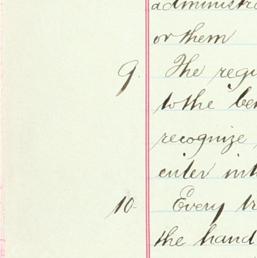 administr
or them
9. The regi
to the be
recognize
enter int
10. Every tr
the hand